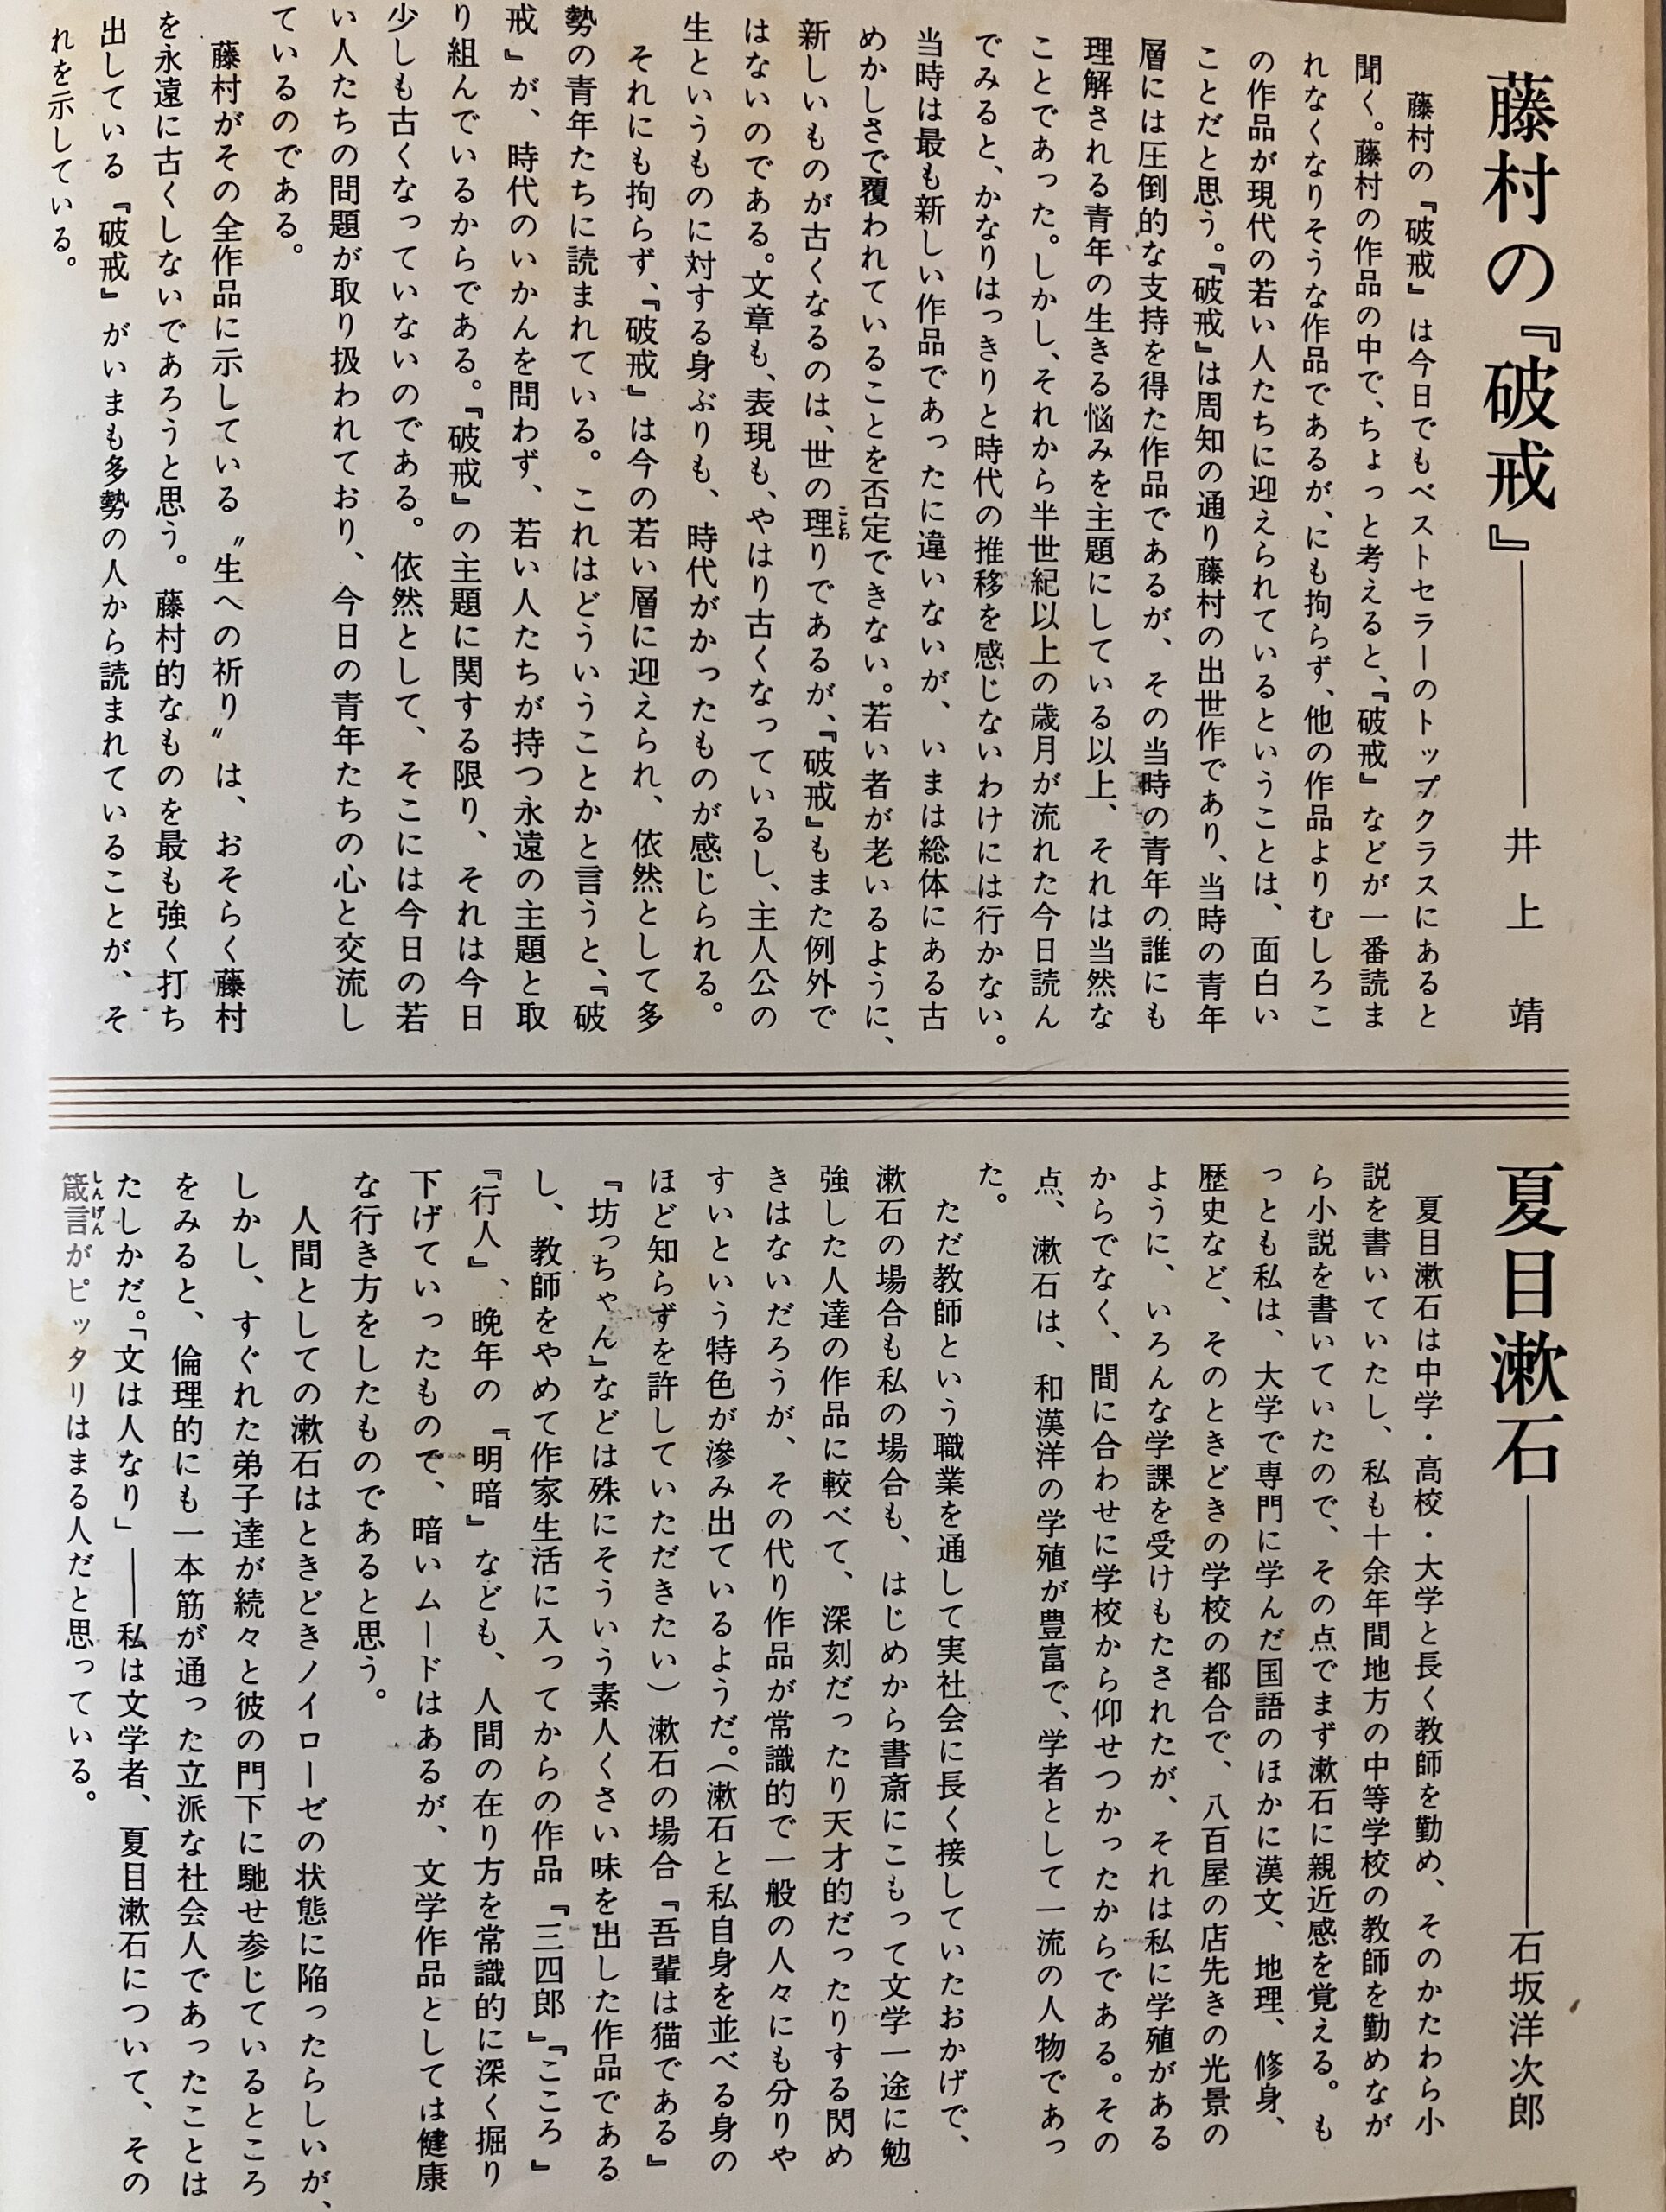 藤村の『破戒』――井上 靖
藤村の『破戒』は今日でもベストセラーのトップクラスにあると
聞く。藤村の作品の中で、ちょっと考えると、『破戒』などが一番読ま
れなくなりそうな作品であるが、にも拘らず、他の作品よりむしろこ
の作品が現代の若い人たちに迎えられているということは、面白い
ことだと思う。『破戒』は周知の通り藤村の出世作であり、当時の青年
層には圧倒的な支持を得た作品であるが、その当時の青年の誰にも
理解される青年の生きる悩みを主題にしている以上、それは当然な
ことであった。しかし、それから半世紀以上の歳月が流れた今日読ん
でみると、かなりはっきりと時代の推移を感じないわけには行かない。
当時は最も新しい作品であったに違いないが、いまは総体にある古
めかしさで覆われていることを否定できない。若い者が老いるように、
新しいものが古くなるのは、世の理りであるが、『破戒』もまた例外で
はないのである。文章も、表現も、やはり古くなっているし、主人公の
生というものに対する身ぶりも、時代がかったものが感じられる。
それにも拘らず、『破戒』は今の若い層に迎えられ、依然として多
勢の青年たちに読まれている。これはどういうことかと言うと、『破
戒』が、時代のいかんを問わず、若い人たちが持つ永遠の主題と取
り組んでいるからである。『破戒』の主題に関する限り、それは今日
少しも古くなっていないのである。依然として、そこには今日の若
い人たちの問題が取り扱われており、今日の青年たちの心と交流し
ているのである。
藤村がその全作品に示している〝生への祈り〟は、おそらく藤村
を永遠に古くしないであろうと思う。藤村的なものを最も強く打ち
出している『破戒』がいまも多勢の人から読まれていることが、そ
れを示している。
夏目漱石――石坂洋次郎
夏目漱石は中学・高校・大学と長く教師を勤め、そのかたわら小
説を書いていたし、私も十余年間地方の中等学校の教師を勤めなが
ら小説を書いていたので、その点でまず漱石に親近感を覚える。も
っとも私は、大学で専門に学んだ国語のほかに漢文、地理、修身、
歴史など、そのときどきの学校の都合で、八百屋の店先きの光景の
ように、いろんな学課を受けもたされたが、それは私に学殖がある
からでなく、間に合わせに学校から仰せつかったからである。その
点、漱石は、和漢洋の学殖が豊富で、学者として一流の人物であっ
た。
ただ教師という職業を通して実社会に長く接していたおかげで、
漱石の場合も私の場合も、はじめから書斎にこもって文学一途に勉
強した人達の作品に較べて、深刻だったり天才的だったりする閃め
きはないだろうが、その代り作品が常識的で一般の人々にも分りや
すいという特色が滲み出ているようだ。（漱石と私自身を並べる身の
ほど知らずを許していただきたい）漱石の場合『吾輩は猫である』
『坊っちゃん』などは殊にそういう素人くさい味を出した作品である
し、教師をやめて作家生活に入ってからの作品『三四郎』『こころ』
『行人』、晩年の『明暗』なども、人間の在り方を常識的に深く掘り
下げていったもので、暗いムードはあるが、文学作品としては健康
な行き方をしたものであると思う。
人間としての漱石はときどきノイローゼの状態に陥ったらしいが、
しかし、すぐれた弟子達が続々と彼の門下に馳せ参じているところ
をみると、倫理的にも一本筋が通った立派な社会人であったことは
たしかだ。「文は人なり」――私は文学者、夏目漱石について、その
箴言がピッタリはまる人だと思っている。